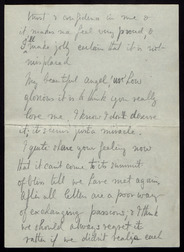 trust & confidence in me &
it makes me feel very proud, &
I'll make jolly certain that it is not
misplaced.
My beautiful angel, how
glorious it is to think you really
love me. I know I don't deserve
it, it seems just a miracle.
I quite share your feeling now
that it can't come to its summit
of bliss till we have met again.
After all letters are a poor way
of exchanging passions, & I think
we should always regret it
rather if we didn't realize each